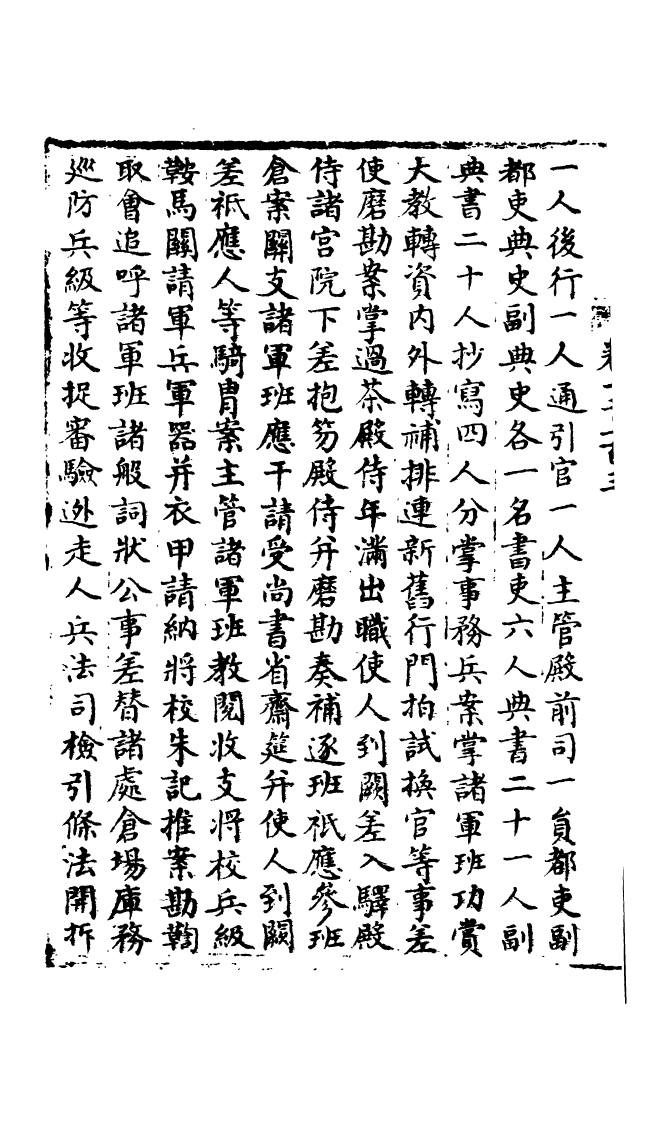 一人後行一人通引官一人主管殿前司一員都吏副
都吏典史副典史各一名書吏六人典書二十一人副
典書二十人抄寫四人分掌事務兵案掌諸軍班功賞
大教轉資内外轉補排連新舊行門拍試換官等事差
使磨勘案掌過茶殿侍年滿出職使人到闕差入驛殿
侍諸宮院下差抱笏殿侍并磨勘奏補逐班祇應參班
倉案關支諸軍班應干請受尚書省齋筵并使人到闕
差祇應人等騎胄案主管諸軍班教閱收支將校兵級
鞍馬關請軍兵軍器并衣甲請納將校朱記推案勘鞫
取會追呼諸軍班諸般詞狀公事差替諸處倉場庫務
廵防兵級等收捉審驗迯走人兵法司檢引條法開拆